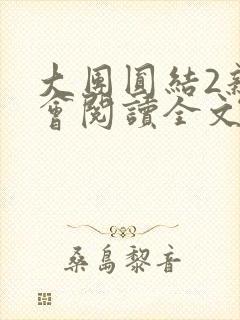 大團圓結2新
會閱讀全文
桑島黎音